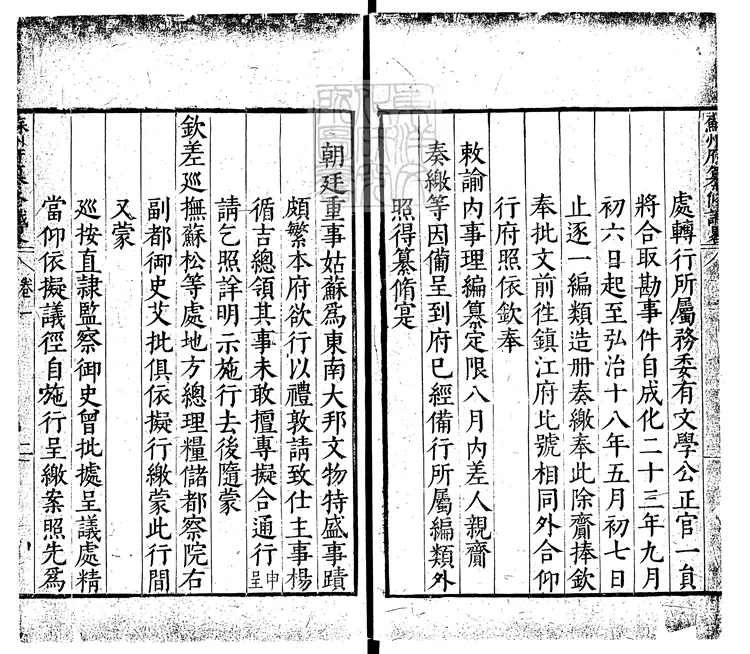 蘇州府纂修識畧
處轉行所屬務委有文學公正官一員
將合取勘事件自成化二十三年九月
初六日起至弘治十八年五月初七日
止逐一編類造冊奏繳奉此除齎捧欽
奉批文前往鎮江府比號相同外合仰
行府照依欽奉
敕諭內事理編纂定限八月內差人親齎
奏繳等因備呈到府已經備行所屬編類外
照得纂脩寔
朝廷重事姑蘇爲東南大邦文物特盛事蹟
頗繁本府欲行以禮敦請致仕主事楊
循吉總領其事未敢擅專擬合通行申呈
請乞照詳明示施行去後隨蒙
欽差巡撫蘇松等處地方總理糧儲都察院右
副都御史艾批俱依擬行繳蒙此行間
又蒙
巡按直隸監察御史曾批據呈議處精
當仰依擬議徑自施行呈繳案照先爲
卷一
二